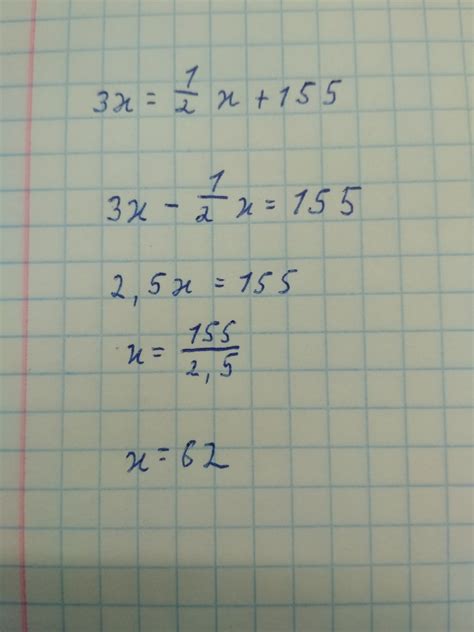 3x = 1/2 x + 155
3x - 1/2 x = 155
2,5x = 155
x = 155/2,5
x = 62